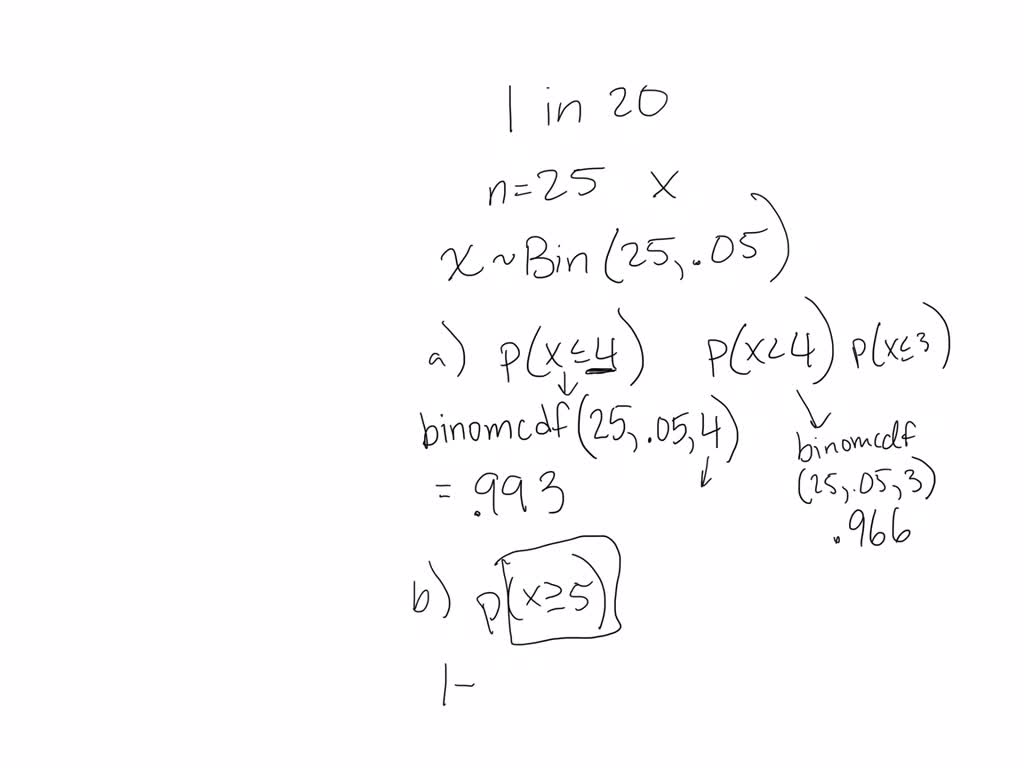 1 in 20
n=25 x
x ~ Bin (25, .05)
a) p(x ≤ 4) p(x < 4) p(x ≤ 3)
binomcdf (25, .05, 4)
= .993
binomcdf
(25, .05, 3)
.966
b) p(x ≥ 5)
1 -